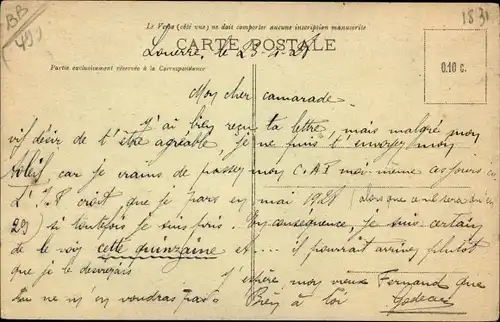 BB
(49)
1831
Le Verso (côté vue) ne doit comporter aucune inscription manuscrite
CARTE POSTALE
Louerre, le 23-1-28
Partie exclusivement réservée à la Correspondance
0.10 c.
Mon cher camarade.
J'ai bien reçu ta lettre, mais malgré mon
vif désir de t'être agréable, je ne puis t'envoyer mon
car je crains de passer mon C.A.P. moi-même ces jours-ci
L'I.P. croit que je pars en mai 1928 (alors que ce ne sera qu'en
29) si toutefois je suis pris. En conséquence, je suis certain
de le voir cette quinzaine et... il pourrait arriver plutôt
que je le desirerais
J'espère mon vieux Fernand que
tu ne m'en voudras pas. Bien à toi